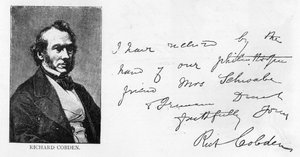 RICHARD COBDEN.
I have received by the
hand of our
friend Mrs Schwabe
faithfully Yours
Richd Cobden